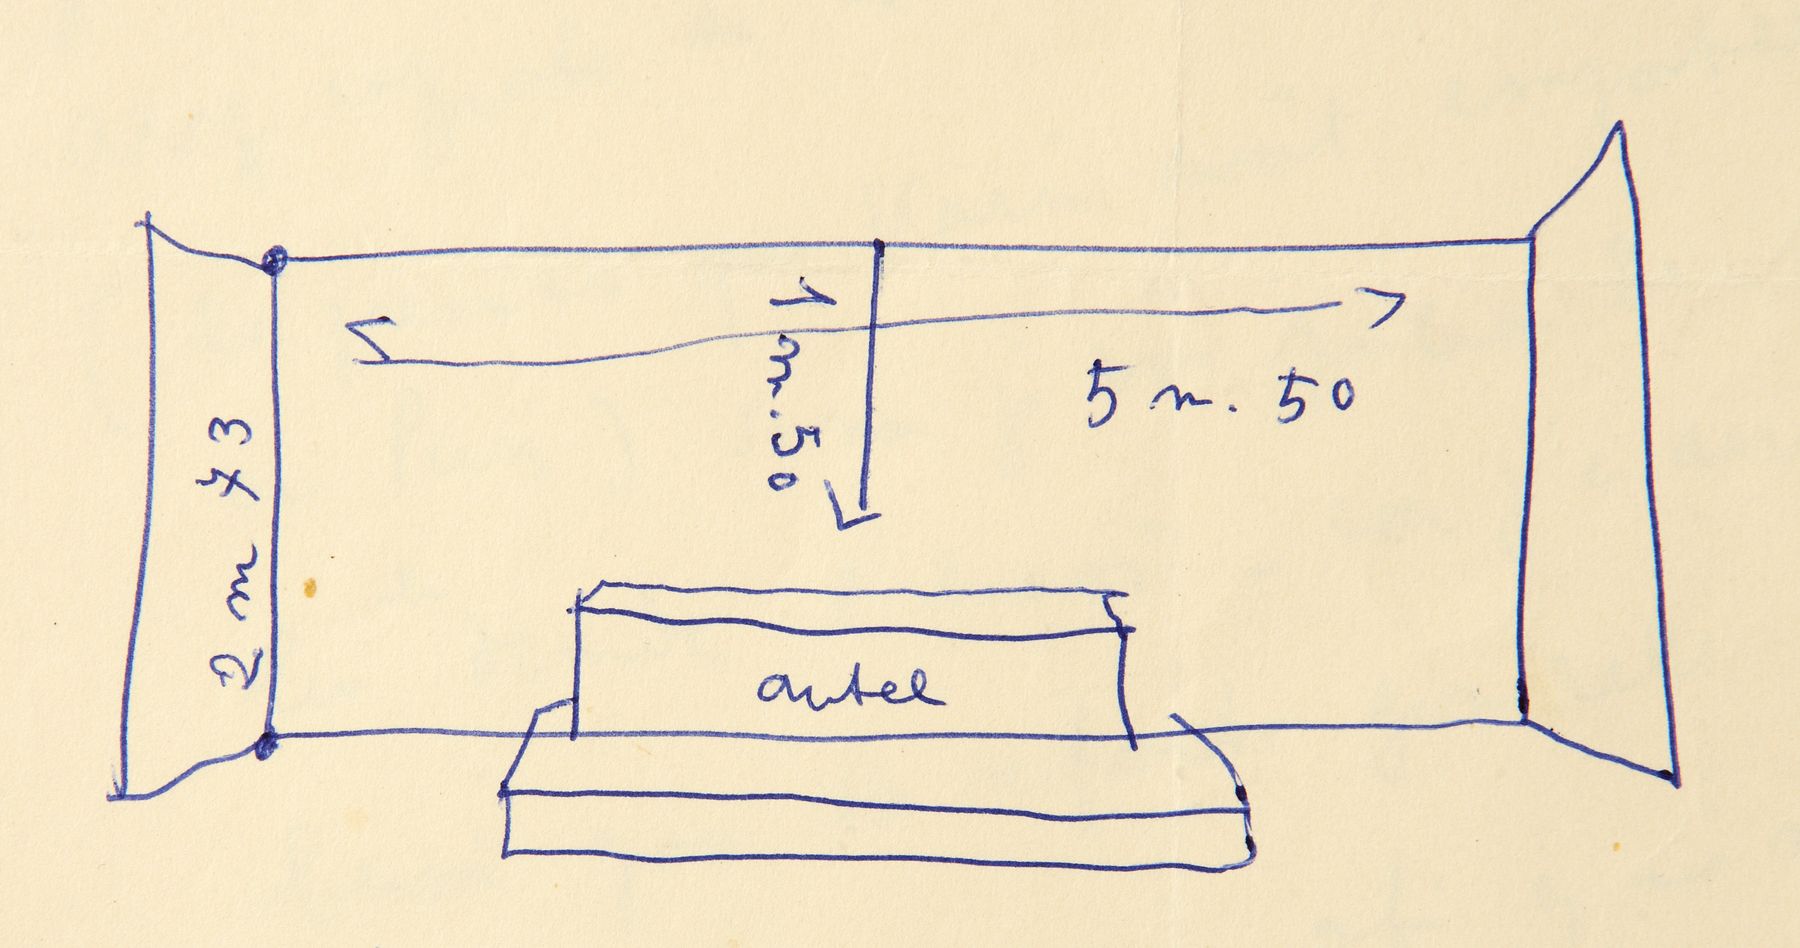 1 m. 50
5 m. 50
2 m 73
autel